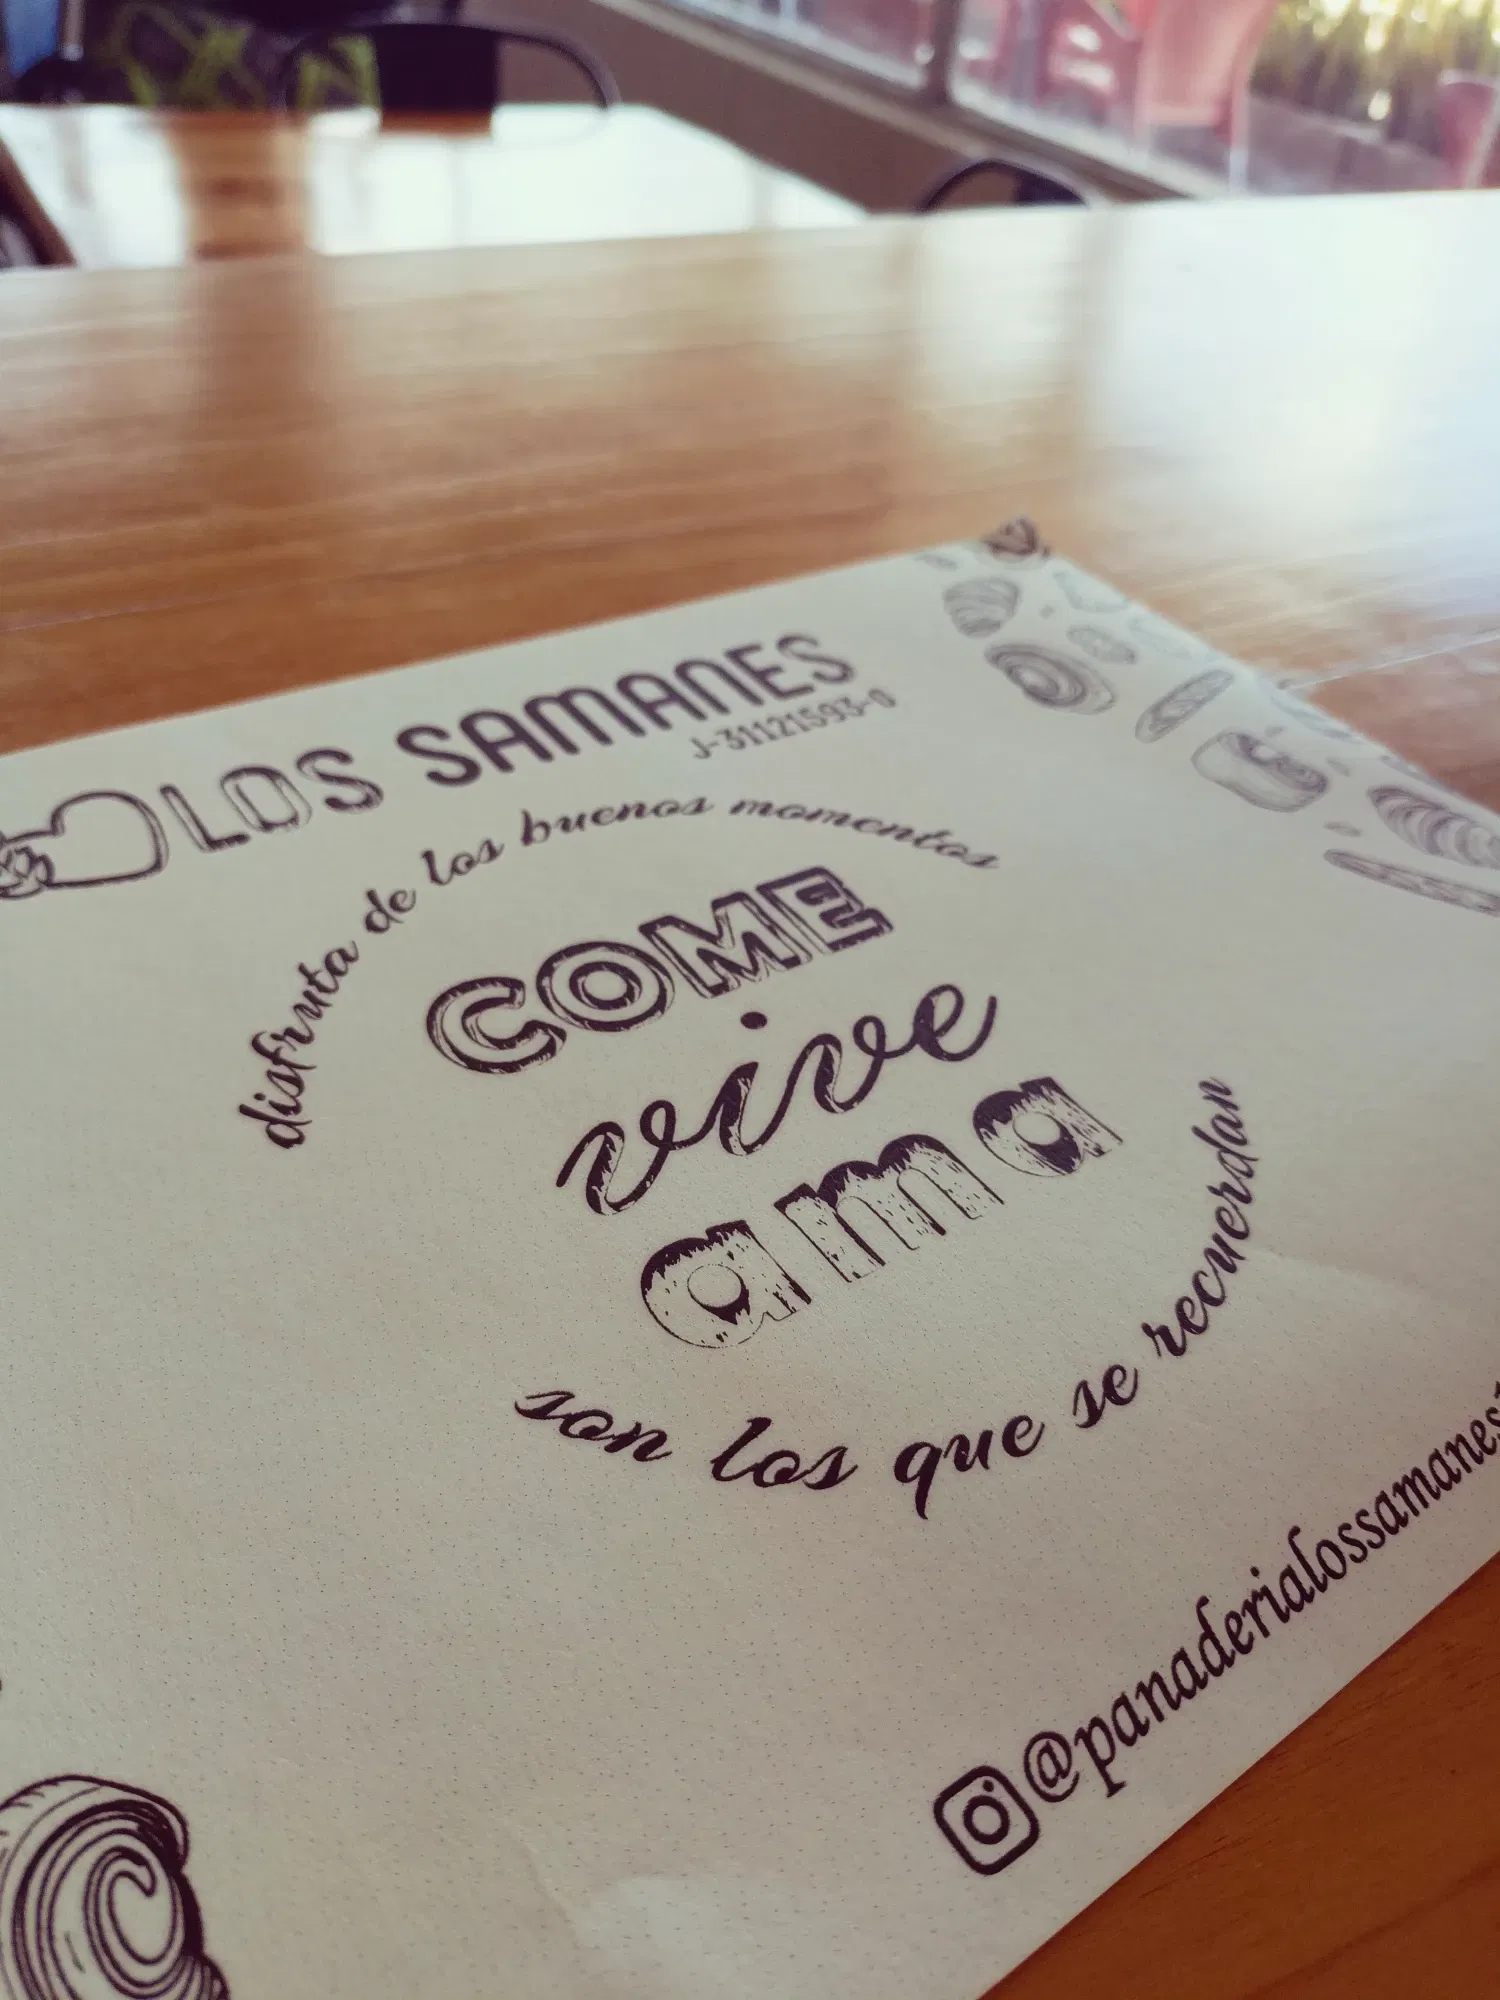 LOS SAMANES
J-31121593-0
disfruta de los buenos momentos
COME
vive
ama
son los que se recuerdan
@panaderialossamanes